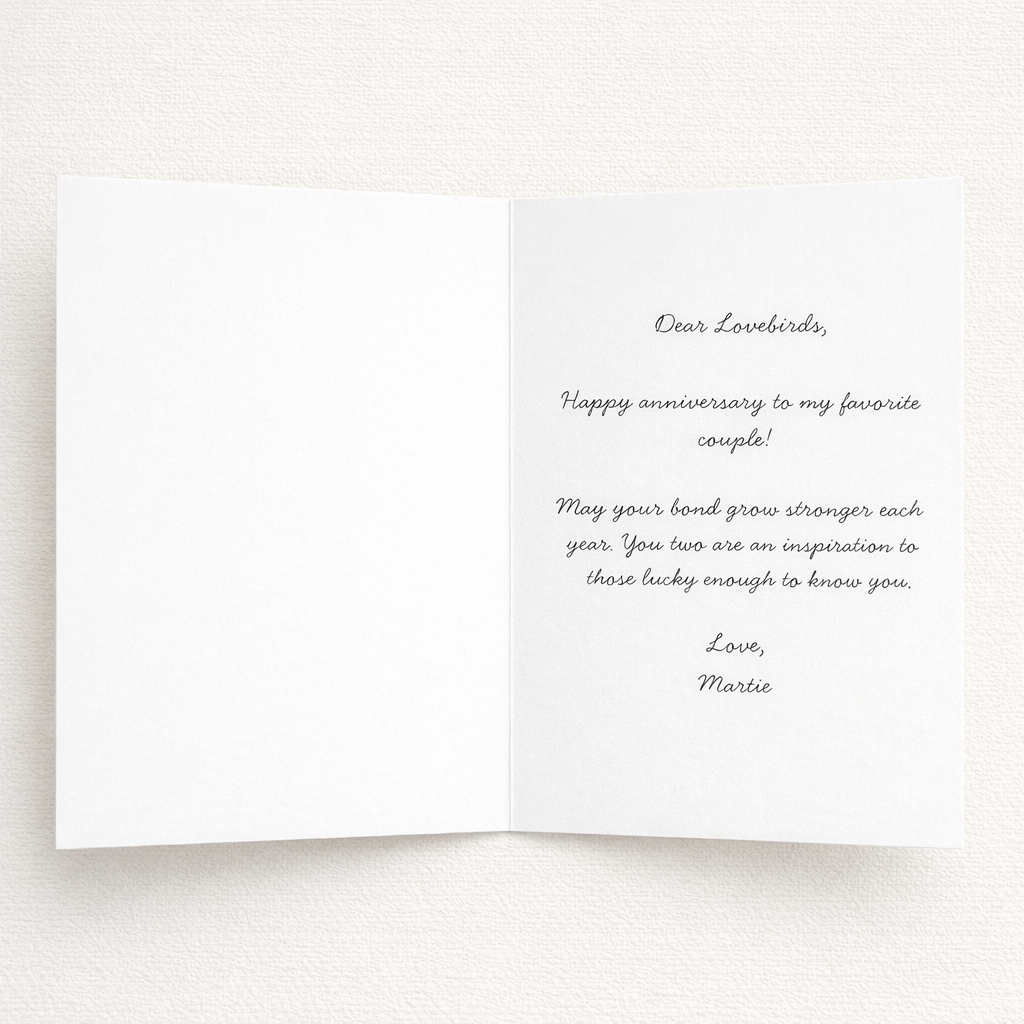 Dear Lovebirds,
Happy anniversary to my favorite
couple!
May your bond grow stronger each
year. You two are an inspiration to
those lucky enough to know you.
Love,
Martie